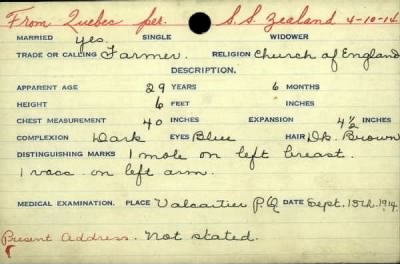 From Quebec per. S.S. Zealand 4-10-14
MARRIED yes. SINGLE WIDOWER
TRADE OR CALLING Farmer. RELIGION Church of England
DESCRIPTION.
APPARENT AGE 29 YEARS 6 MONTHS
HEIGHT 6 FEET INCHES
CHEST MEASUREMENT 40 INCHES EXPANSION 4½ INCHES
COMPLEXION Dark EYES Blue HAIR Dk. Brown
DISTINGUISHING MARKS 1 mole on left breast.
1 vacc. on left arm.
MEDICAL EXAMINATION. PLACE Valcartier P.Q DATE Sept. 13th. 1914.
Present Address. Not stated.